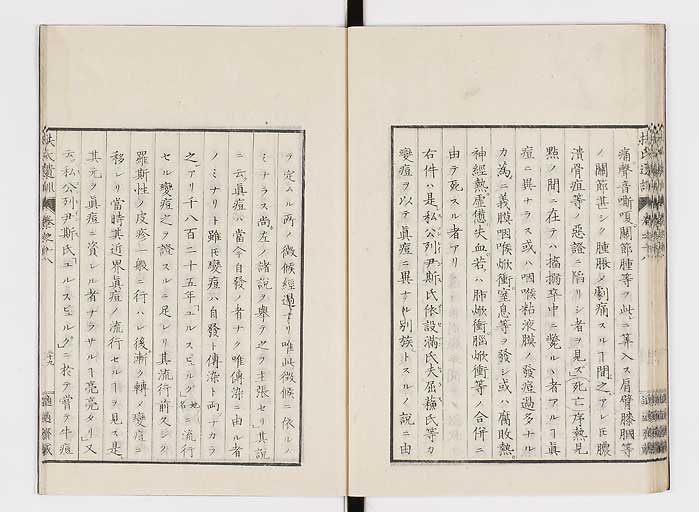 痛聲音嘶嗄關節腫等ヲ此ニ算入ス肩臂膝膕等
ノ關節甚シク腫脹ノ劇痛スルヿ間之アレ𪜈膿
潰骨疽等ノ惡證ニ陷リシ者ヲ見ズ死亡序熱見
點ノ間ニ在テハ搐搦卒中ニ斃ルヽ者アルヿ眞
痘ニ異ナラス或ハ咽喉粘液膜ノ發痘過多ナル
カ為ニ義膜咽喉焮衝窒息等ヲ發シ或ハ腐敗熱
神經熱虛憊失血若ハ肺焮衝腦焮衝等ノ合併ニ
由テ死スル者アリ
右件ハ是私公列尹斯氏依設滿氏夫屈 氏等カ
變痘ヲ以テ眞痘ニ異ナル別族トスルノ說ニ由
ヲ定ムル所ノ徵候經過ナリ唯此徵候ニ依ルノ
ミナラス尚左ノ諸說ヲ擧テ之ヲ主張セリ其說
ニ云眞痘ハ當今自發ノ者ナク唯傳染ニ由ル者
ノミナリト雖𪜈變痘ハ自發ト傳染ト両ナカラ
之アリ千八百二十五年ユルスビルグ地名ニ流行
セル變痘之ヲ證スルニ足レリ其流行前久シク
羅斯性ノ皮疹一般ニ行ハレ後漸ク轉ノ變痘ニ
移レリ當時其近界眞痘ノ流行セルヿヲ見ス是
其元ヲ眞痘ニ資レル者ナラサルヿ亮亮タリ又
云私公列尹斯氏ユルスビルグニ於テ嘗テ牛痘